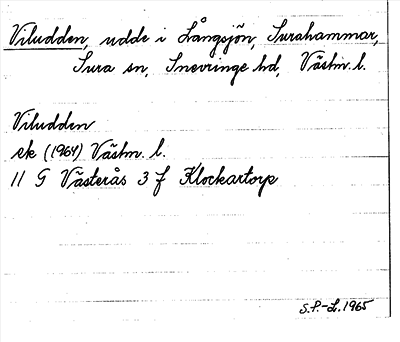 Viludden, udde i Långsjön, Surahammar,
Sura sn, Snevringe hd, Västm. l.
Viludden
ek (1964) Västm. l.
11 G Västerås 3 f Klockartorp
S.P.-L. 1965